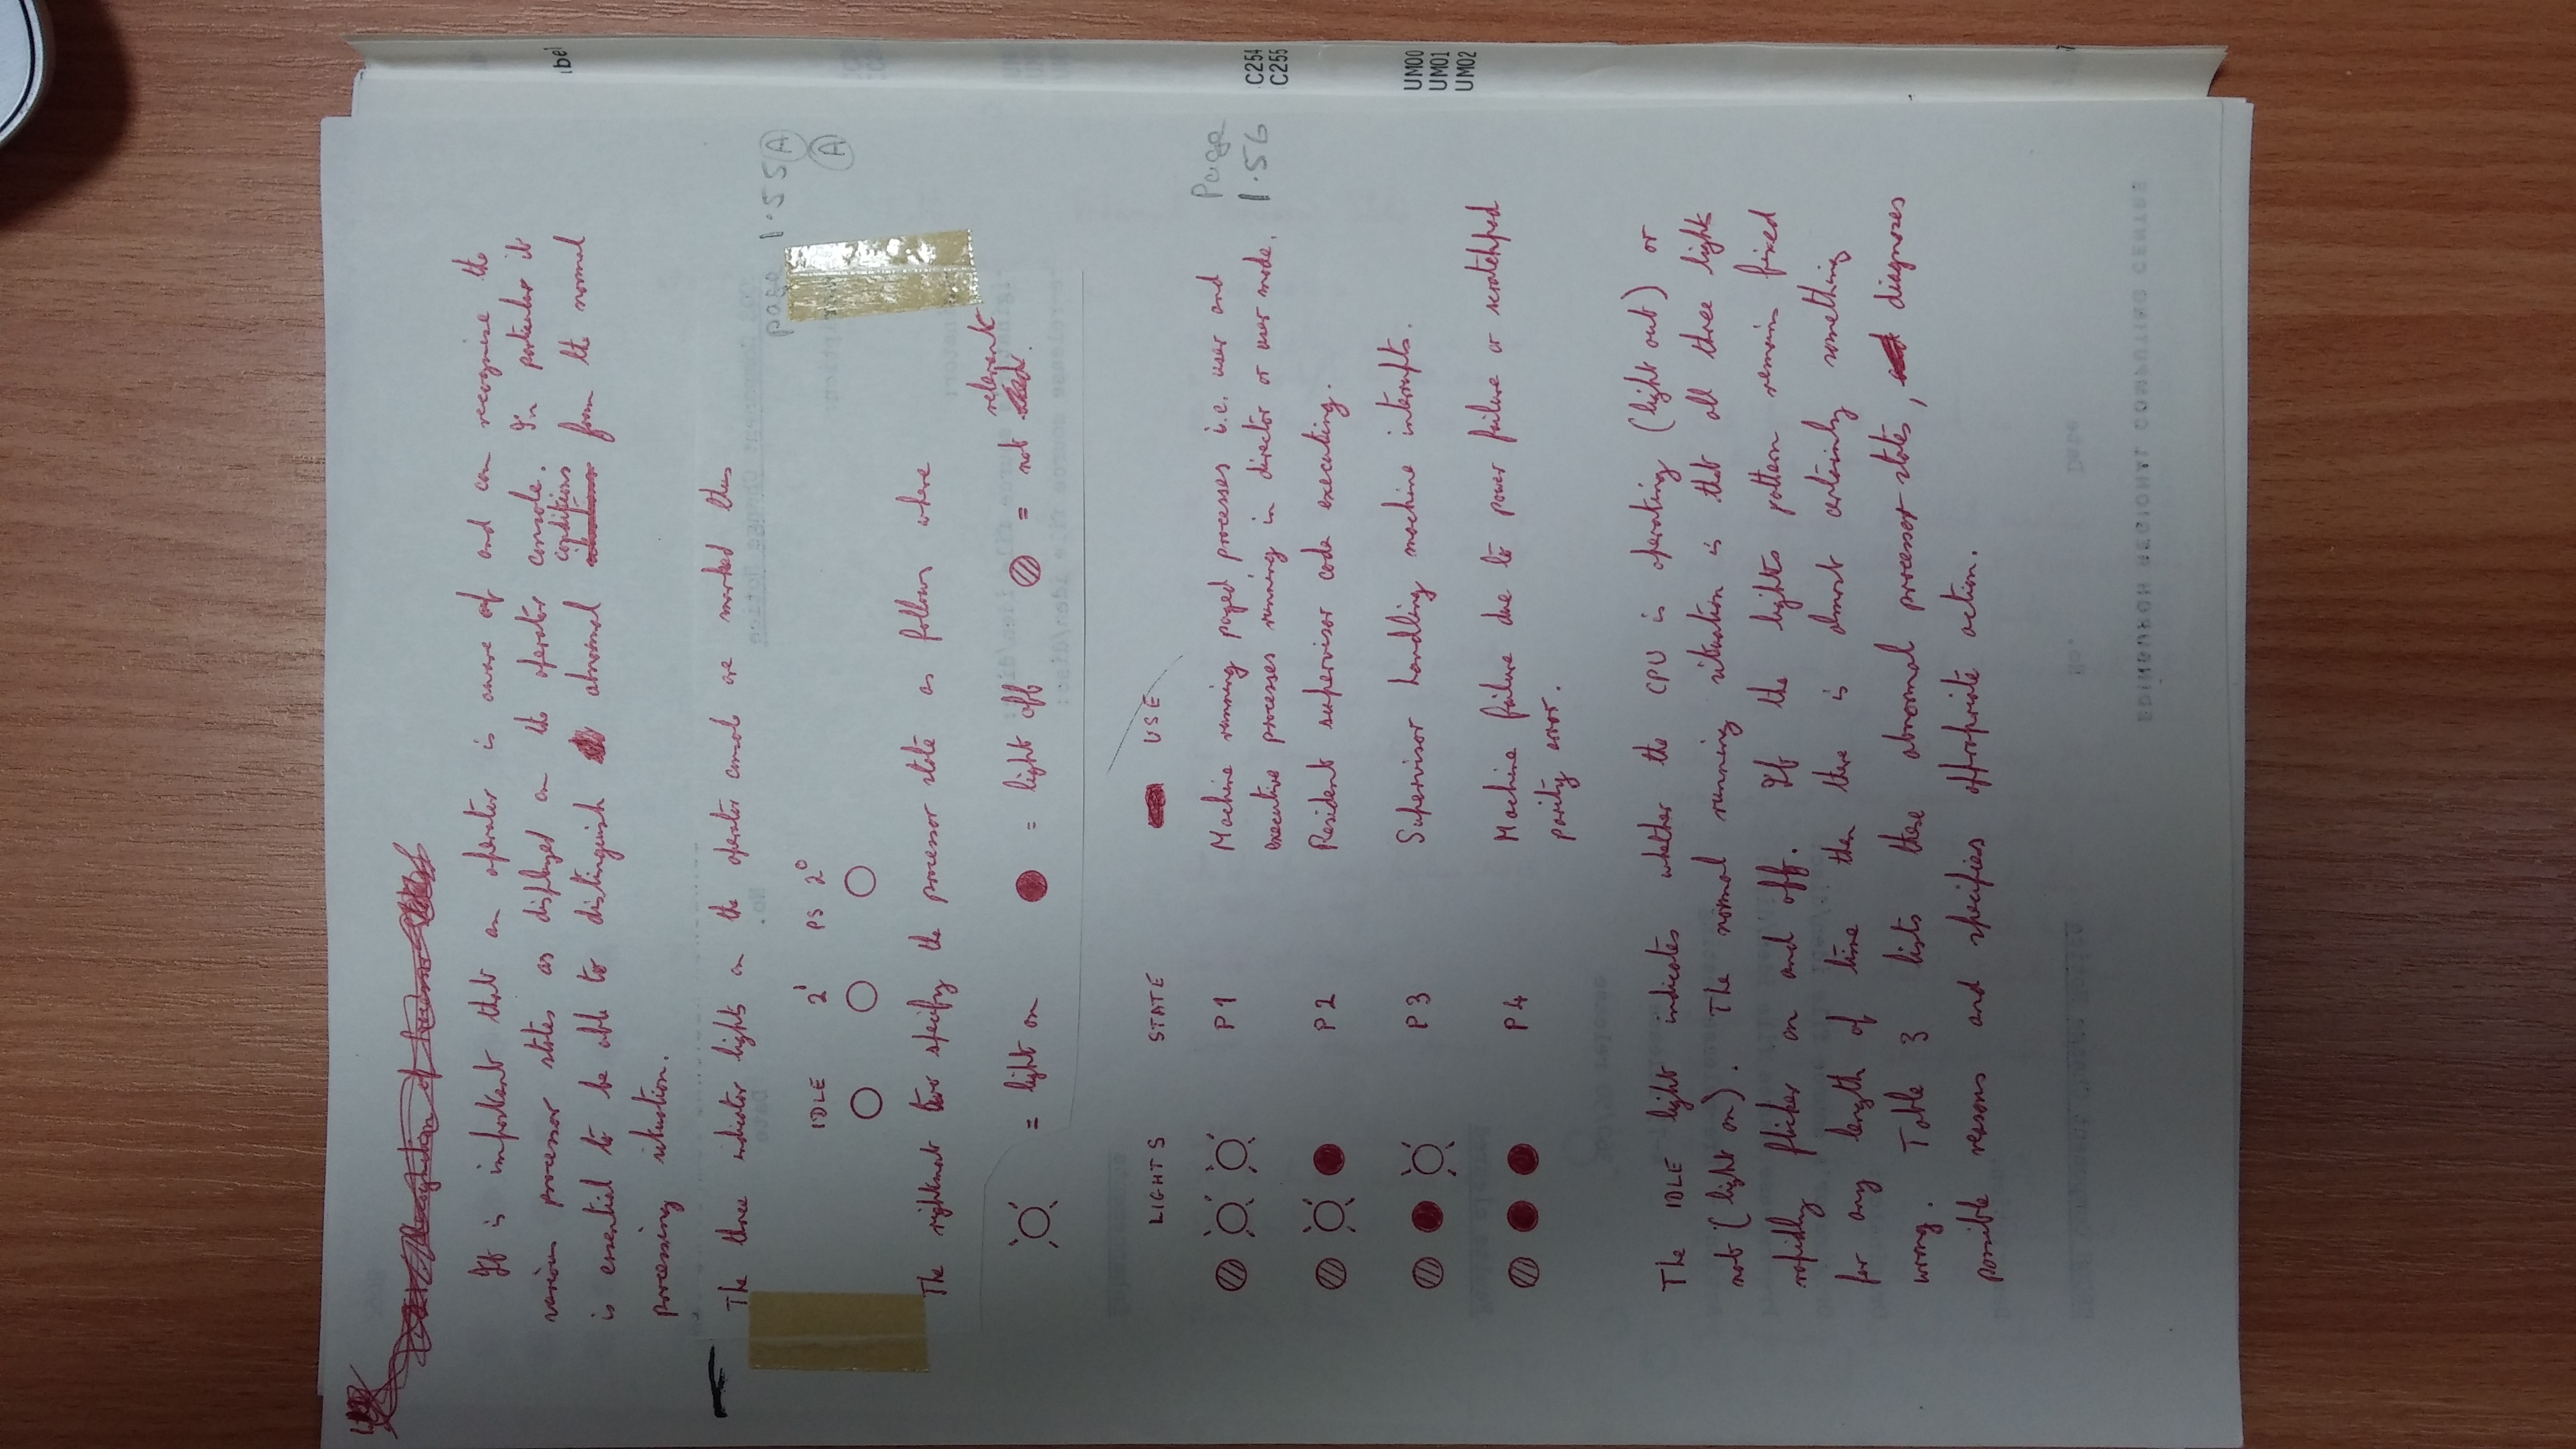 It is important that an operator is aware of and can recognise the
various processor states as displayed on the operator console. In particular it
is essential to be able to distinguish abnormal conditions from the normal
processing situation.
The three indicator lights on the operator consol are marked thus
Page 1.55 A
A
IDLE 2¹ PS 2⁰
The rightmost two specify the processor state as follows where
= light on = light off = not relevant.
LIGHTS STATE USE
Page
1.56
P1 Machine running paged processes i.e. user and
executive processes running in director or user mode.
P2 Resident supervisor code executing.
P3 Supervisor handling machine interrupts.
P4 Machine failure due to power failure or scratchpad
parity error.
The IDLE light indicates whether the CPU is operating (light out) or
not (light on). The normal running situation is that all three light
rapidly flicker on and off. If the lights pattern remains fixed
for any length of time then there is almost certainly something
wrong. Table 3 lists these abnormal processor states, diagnoses
possible reasons and specifies appropriate action.
abel
C254
C255
UM00
UM01
UM02
EDINBURGH REGIONAL COMPUTING CENTRE
No. Date